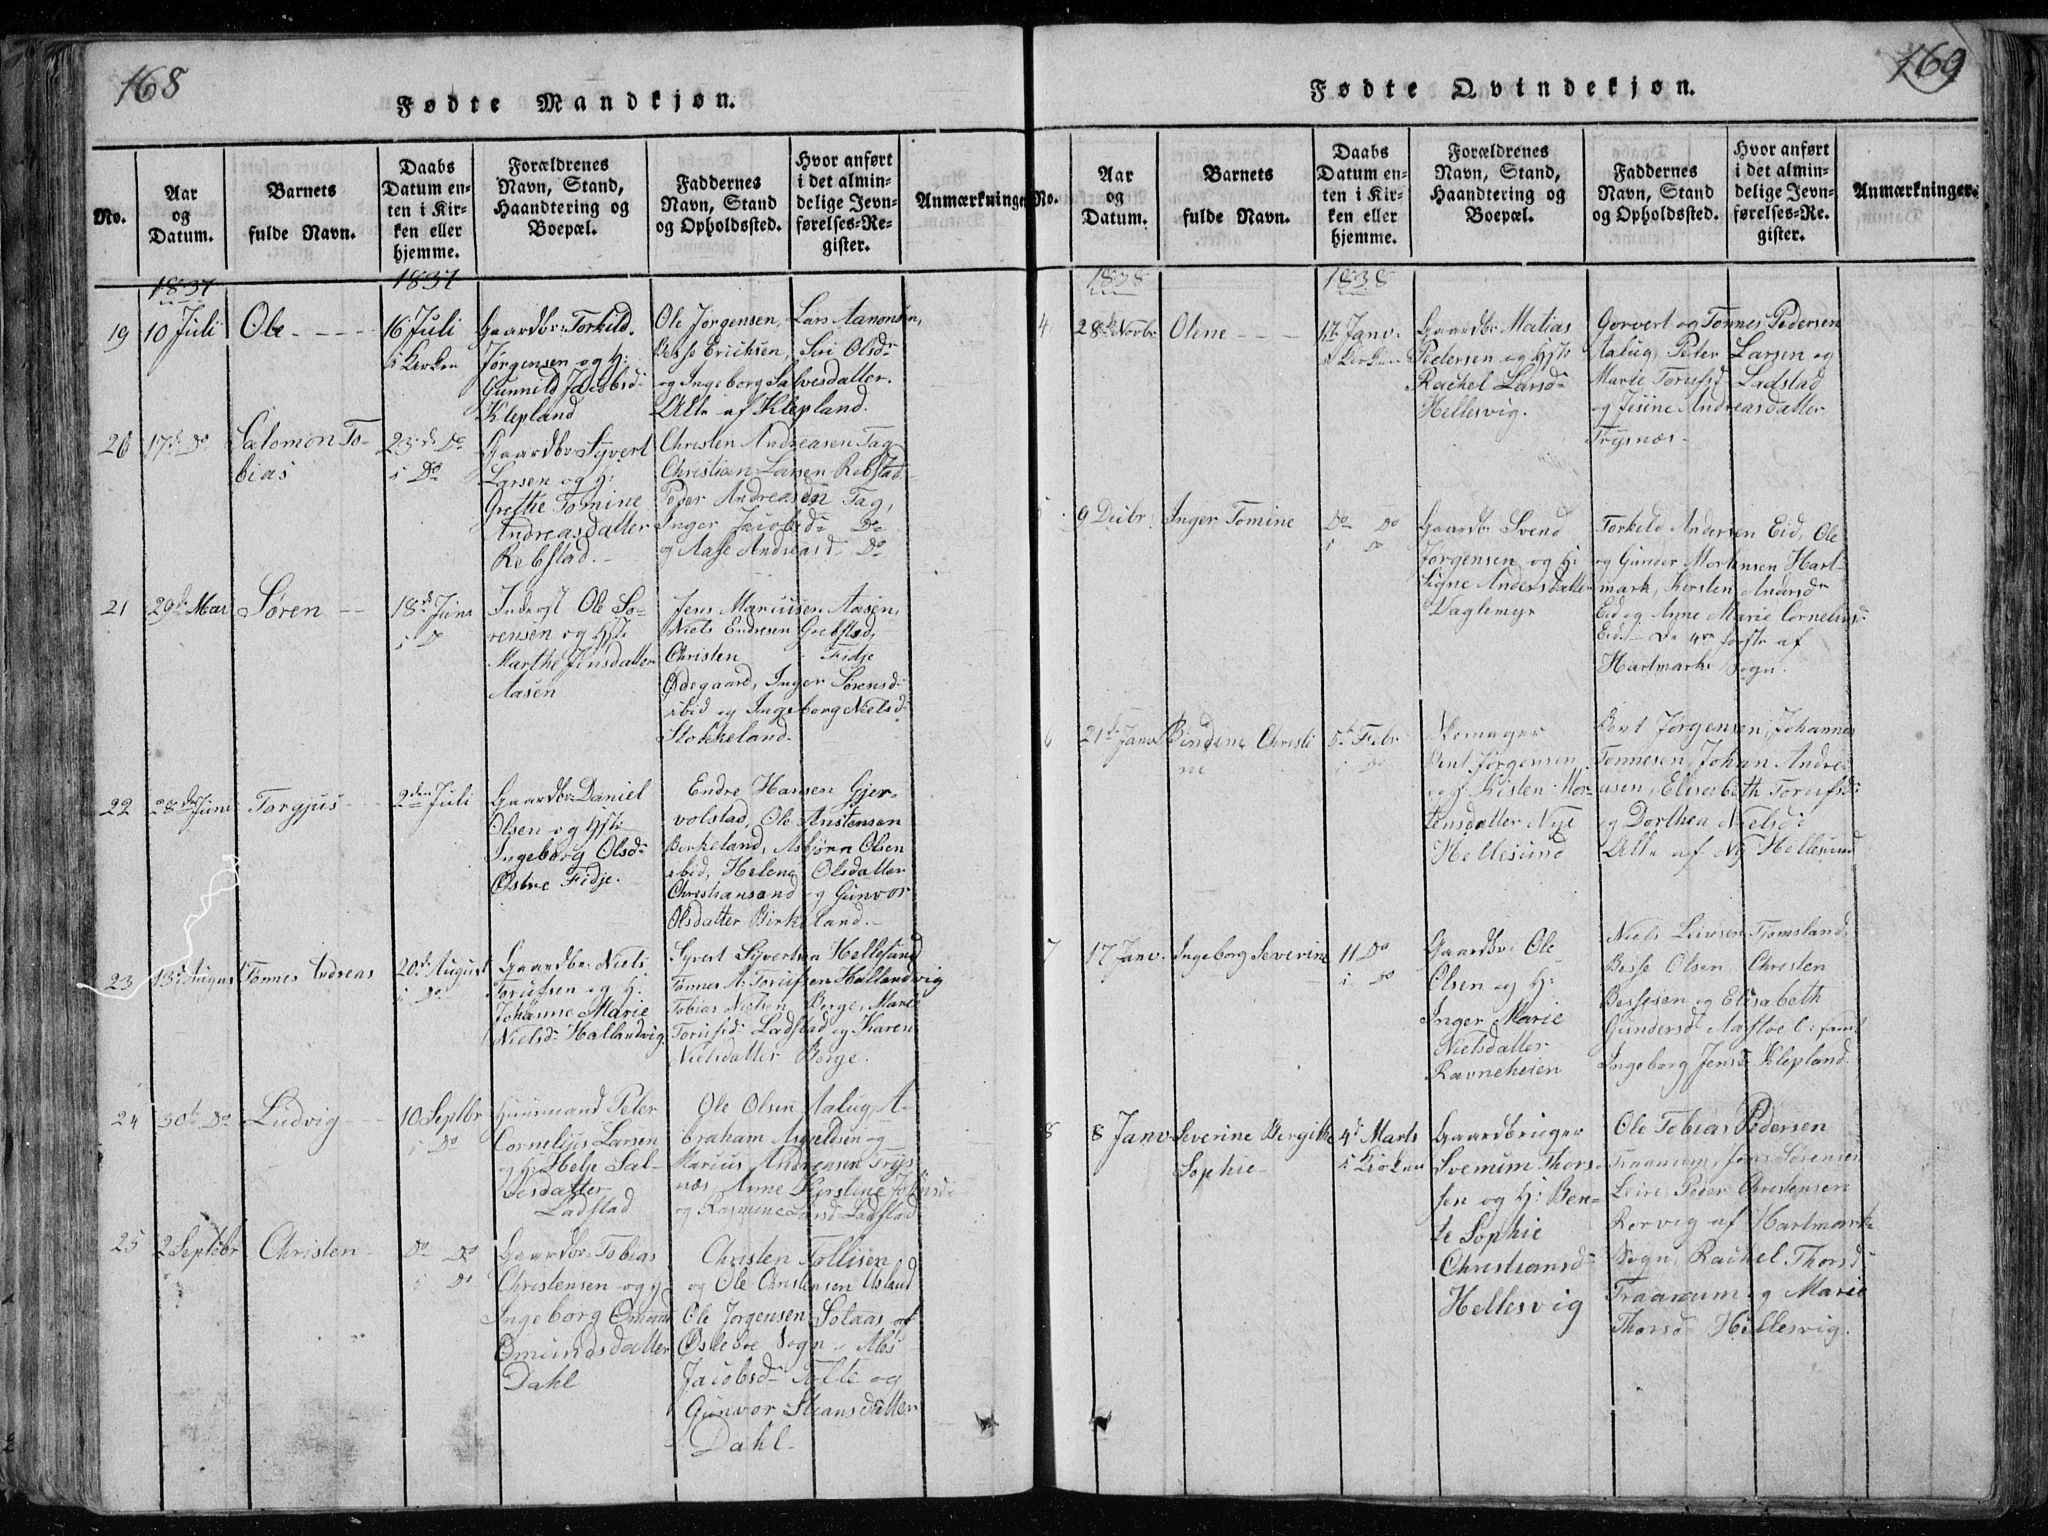 168
Fødte Mandkjøn.
No.
Aar
og
Datum.
Barnets
fulde Navn.
Daabs
Datum en-
ten i Kir-
ken eller
hjemme.
Forældrenes
Navn, Stand,
Haandtering og
Boepæl.
Faddernes
Navn, Stand
og Opholdssted.
Hvor anført
i det almin-
delige Jevn-
førelses-Re-
gister.
Anmærkninge
1837
1837
19
10 Juli
Ole
16 Juli
i Kirken
Gaardbr: Torkild
Jørgensen og H:
Gunnild Jacobsd:
Klepland
Ole Jørgensen, Lars Aanonsen,
Besse Erichsen, Siri Olsd:
og Ingeborg Salvesdatter.
Alle af Klepland.
20
17d: Do
Salomon To-
bias
23d: Do
i Do
Gaardbr: Syvert
Larsen og H:
Grethe Tomine
Andreasdatter
Rebstad.
Christen Andreasen Tag
Christian Larsen Rebstad
Peder Andreasen Tag,
Inger Jacobsd: Do
og Aase Andreasd: Do
21
29de Mai
Søren
18d: Juni
i Do
Inderst Ole Sø-
rensen og Hst:
Marthe Jensdatter
Aasen
Jens Marcusen Aasen,
Niels Endresen Grebstad,
Christen Fidje
Ødegaard, Inger Sørensd:
ibid og Ingeborg Nielsd:
Stokkeland.
22
28de Juni
Torgjus
2den Juli
Gaardbr: Daniel
Olsen og Hst:
Ingeborg Olsd:
Østre Fidje.
Endre Hansen Gjer-
volstad, Ole Anstensen
Birkeland, Asbjørn Olsen
ibid, Helene Olsdatter
Christiansand og Gunvor
Olsdatter Birkeland.
23
13de August
Tønnes Andreas
20d: August
i Do
Gaardbr: Niels
Torufsen og H:
Johanne Marie
Nielsd: Hallandvig
Syvert Syvertsen Hellesund
Tønnes A: Torufsen Hallandvig
Tobias Nielsen Berge, Marie
Torufsd: Ladstad og Karen
Nielsdatter Berge.
24
30te Do
Ludvig
10 Septbr
i Do
Huusmand Peter
Cornelius Larsen
og H: Helje Sal-
vesdatter
Ladstad
Ole Olsen Aalug, A-
braham Asgildsen og
Marcus Andreasen Trys-
næs, Anne Kirstine Johnsd:
og Rasmine Larsd: Ladstad
25
2 Septebr
Christen
Do Do
i Do
Gaardbr: Tobias
Christensen og H:
Ingeborg Omun
Omundsdatter
Dahl
Christen Tollisen
og Ole Christensen Usland
Ole Jørgensen Solaas af
Øslebø Sogn, Ales
Jacobsd: Tofte og
Gunvor Steansdatter
Dahl.
169
Fødte Qvindekjøn.
No.
Aar
og
Datum.
Barnets
fulde Navn.
Daabs
Datum en-
ten i Kir-
ken eller
hjemme.
Forældrenes
Navn, Stand,
Haandtering og
Boepæl.
Faddernes
Navn, Stand
og Opholdssted.
Hvor anført
i det almin-
delige Jevn-
førelses-Re-
gister.
Anmærkninger.
1838
1838
4
28de Novbr
Oline
17 Janv:
i Kirken
Gaardbr: Matias
Pedersen og Hst:
Rachel Larsd:
Hellesvig.
Gorvert og Tønnes Pedersen
Aalug, Peter Larsen og
Marie Torufsd: Ladstad
og Jesine Andreasdatter
Trysnæs.
5
9 Decbr:
Inger Tomine
Do Do
i Do
Gaardbr: Svend
Jørgensen og H:
Signe Andersdatter
Vaglemyr
Torkild Andersen Eid, Ole
og Gunder Mortensen Hart-
mark, Kirsten Andersd:
Eid og Anne Marie Cornelius-
Eid. De 4re første af
Hartmark Sogn.
6
21de Janv
Bindine Christi
ne
5te Febr
i Do
Skomager
Bent Jørgensen
og H: Kisten Mor-
tensdatter Nye
Hellesund
Bent Jørgensen, Johannes
Tønnesen, Johan Andre-
asen, Elisabeth Torufsd:
og Dorthea Nielsd:
Alle af Ny Hellesund
7
17 Janv.
Ingeborg Severine
11 Do
i Do
Gaardbr: Ole
Olsen og H:
Inger Marie
Nielsdatter
Ravneheien
Niels Livsen Tjomsland,
Besse Olsen, Christen
Bessesen og Elisabeth
Gundersd: Aastøel, samt
Ingeborg Jensd: Klepland.
8
8 Janv
Severine Bergithe
Sophie
4de Marts
i Kirken
Gaardbruger
Svenum Thors-
sen og H: Ben-
te Sophie
Christiansd:
Hellesvig
Ole Tobias Pedersen
Traanum, Jens Sørensen
Leire, Peder Christensen
Rorvig af Hartmark
Sogn, Rachel Thorsd:
Traanum og Marie
Thorsd: Hellesvig.